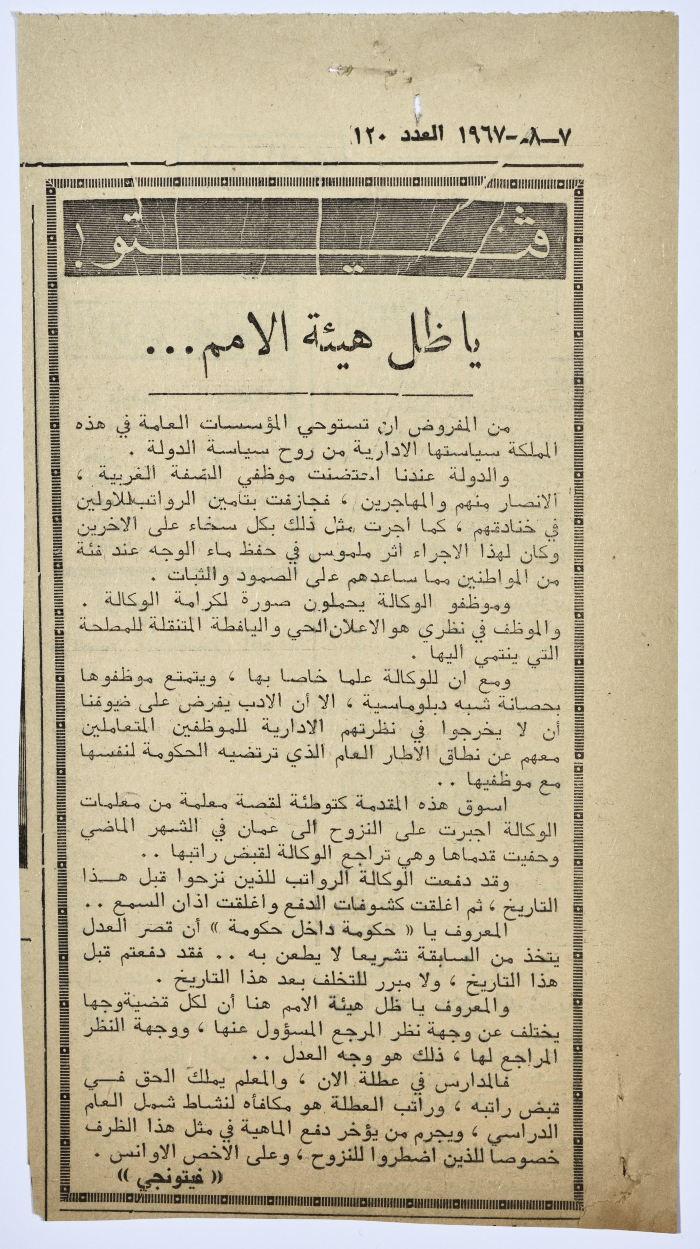 ٧-٨-١٩٦٧ العدد ١٢٠
ڤيتو !
يا ظل هيئة الامم ...
من المفروض ان تستوحي المؤسسات العامة في هذه
المملكة سياستها الادارية من روح سياسة الدولة .
والدولة عندنا احتضنت موظفي الضفة الغربية ،
الانصار منهم والمهاجرين ، فجازفت بتأمين الرواتب للاولين
في خنادقهم ، كما اجرت مثل ذلك بكل سخاء على الاخرين
وكان لهذا الاجراء اثر ملموس في حفظ ماء الوجه عند فئة
من المواطنين مما ساعدهم على الصمود والثبات .
وموظفو الوكالة يحملون صورة لكرامة الوكالة .
والموظف في نظري هو الاعلان الحي واليافطة المتنقلة للمصلحة
التي ينتمي اليها .
ومع ان للوكالة علما خاصا بها ، ويتمتع موظفوها
بحصانة شبه دبلوماسية ، الا أن الادب يفرض على ضيوفنا
أن لا يخرجوا في نظرتهم الادارية للموظفين المتعاملين
معهم عن نطاق الاطار العام الذي ترتضيه الحكومة لنفسها
مع موظفيها ..
اسوق هذه المقدمة كتوطئة لقصة معلمة من معلمات
الوكالة اجبرت على النزوح الى عمان في الشهر الماضي
وحفيت قدماها وهي تراجع الوكالة لقبض راتبها ..
وقد دفعت الوكالة الرواتب للذين نزحوا قبل هـــذا
التاريخ ، ثم اغلقت كشوفات الدفع واغلقت اذان السمع ..
المعروف يا « حكومة داخل حكومة » أن قصر العدل
يتخذ من السابقة تشريعا لا يطعن به .. فقد دفعتم قبل
هذا التاريخ ، ولا مبرر للتخلف بعد هذا التاريخ .
والمعروف يا ظل هيئة الامم هنا أن لكل قضية وجها
يختلف عن وجهة نظر المرجع المسؤول عنها ، ووجهة النظر
المراجع لها ، ذلك هو وجه العدل ..
فالمدارس في عطلة الان ، والمعلم يملك الحق فـــي
قبض راتبه ، وراتب العطلة هو مكافأه لنشاط شمل العام
الدراسي ، ويجرم من يؤخر دفع الماهية في مثل هذا الظرف
خصوصا للذين اضطروا للنزوح ، وعلى الاخص الاوانس .
« فيتونجي »